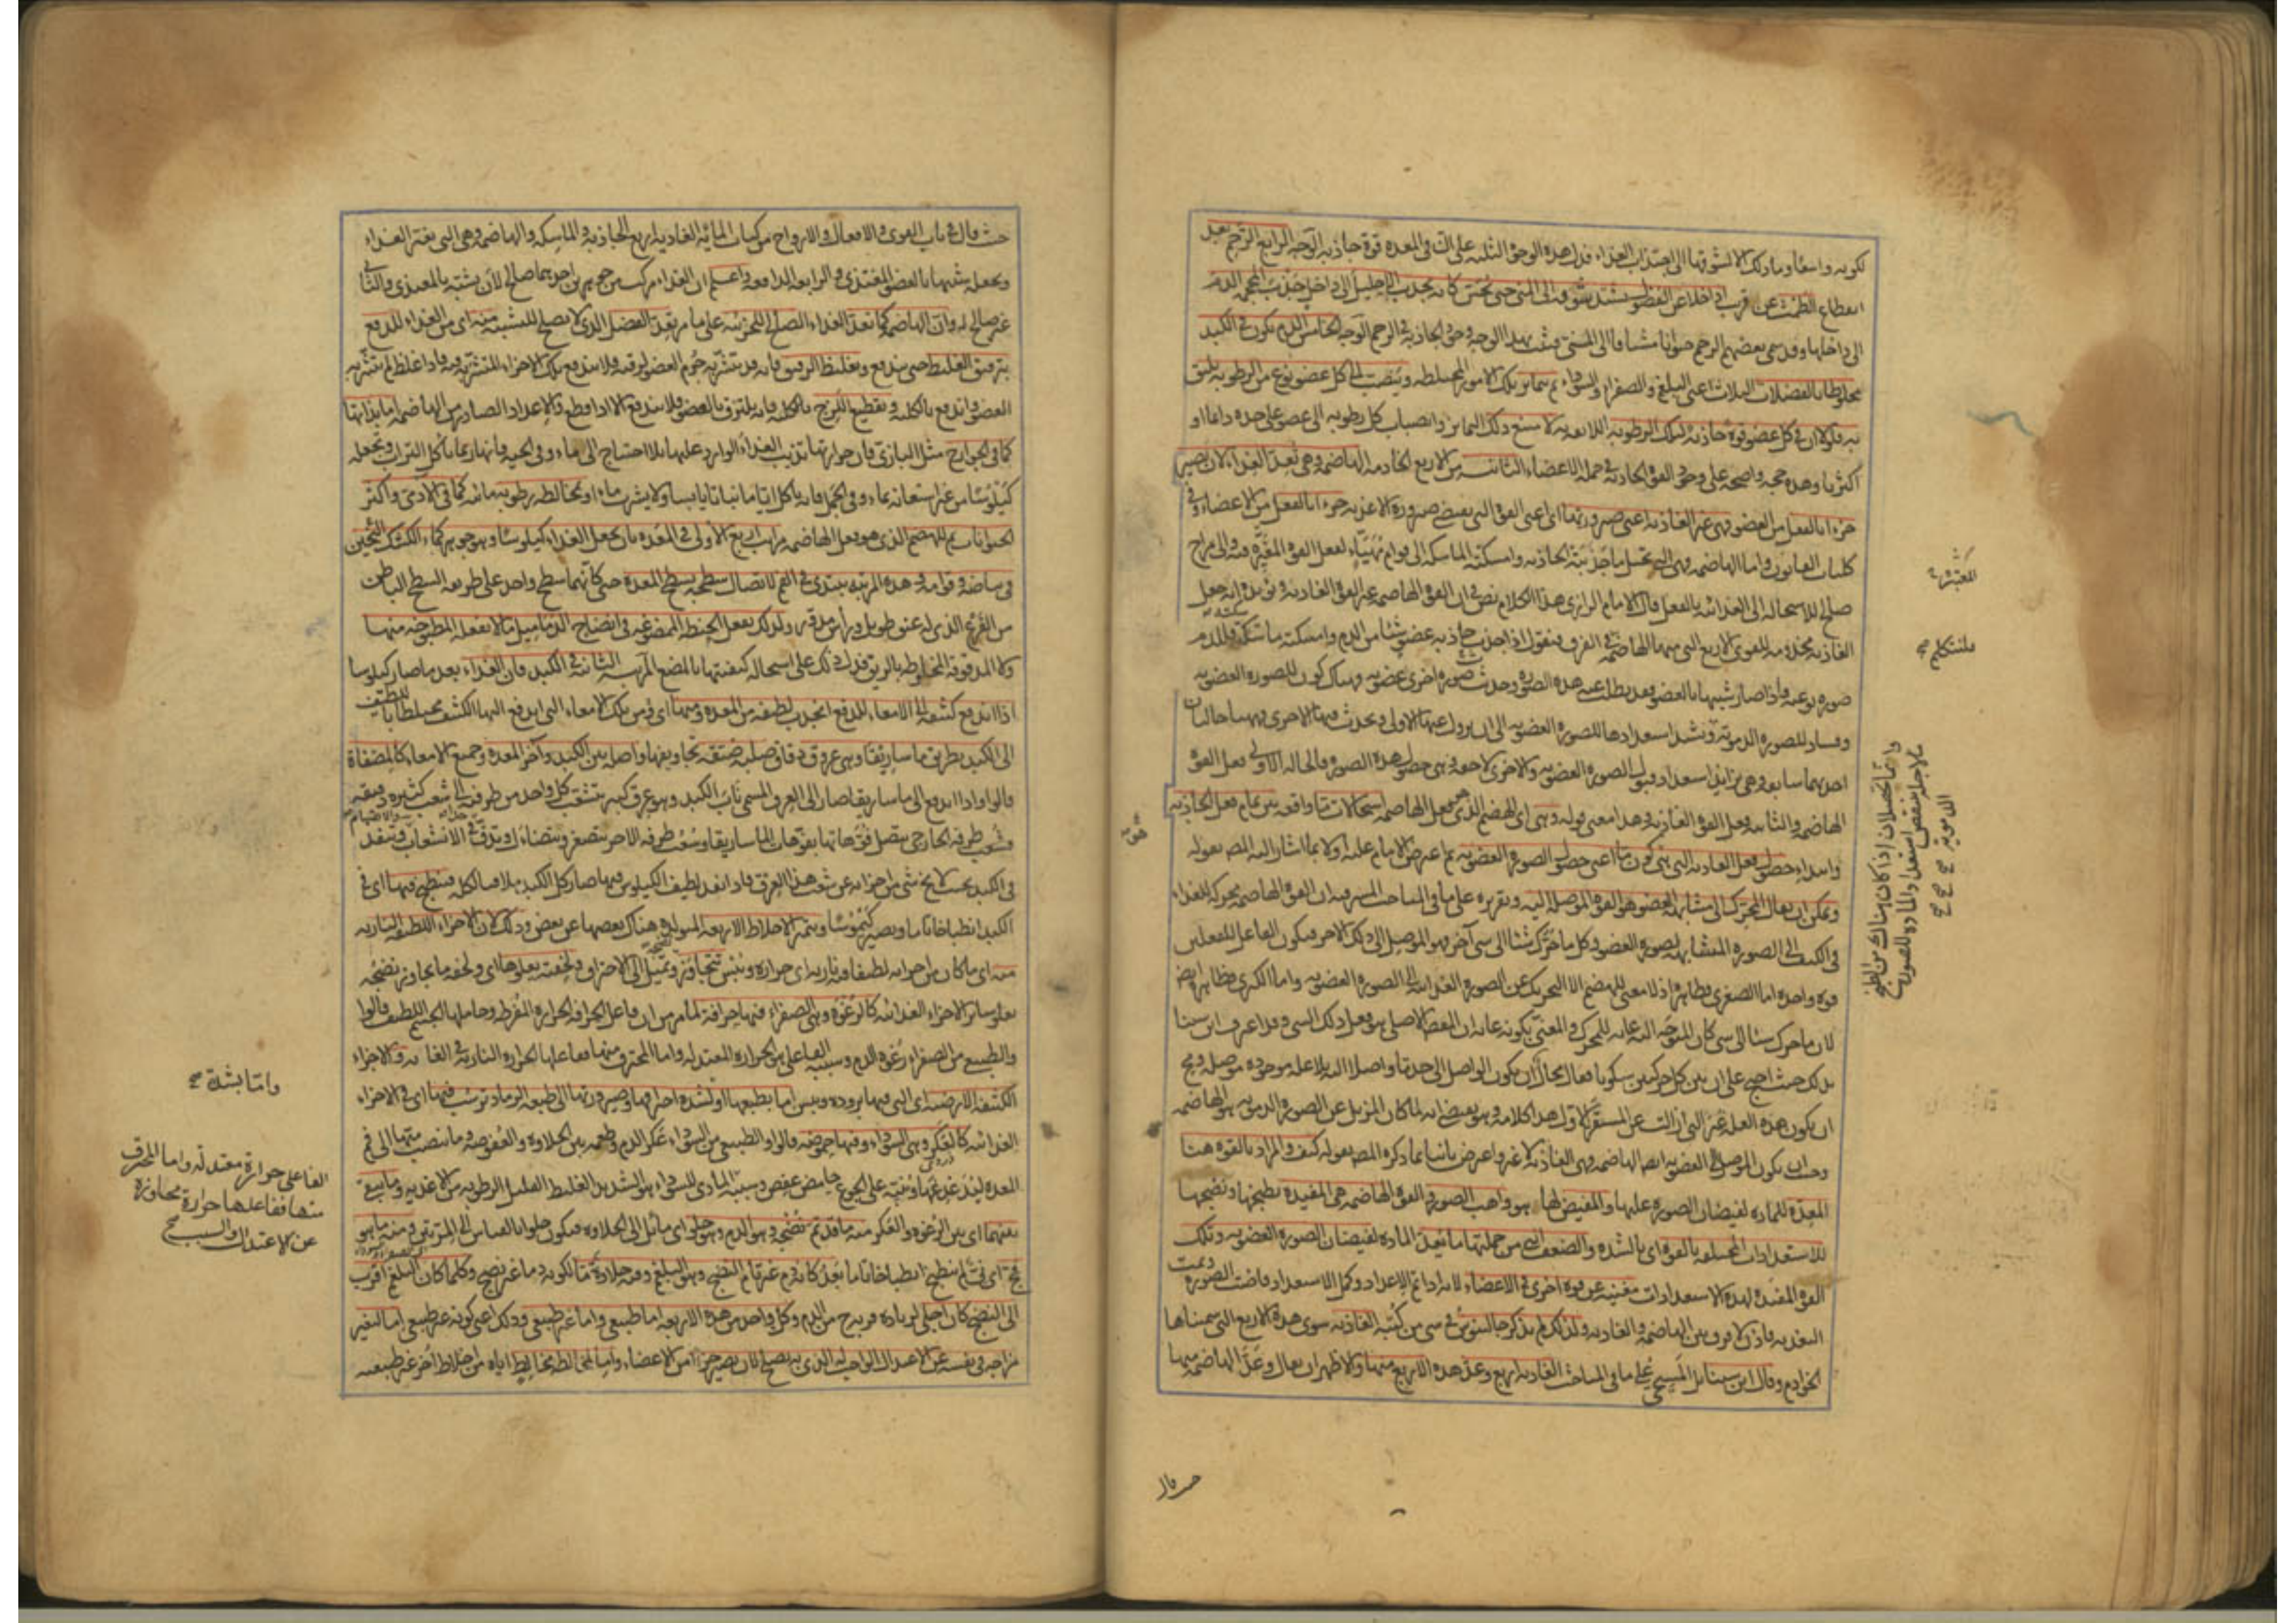 لكونه واسعا وما ذلك الا لشوقها الى اجتذاب الغذاء فدل هذه الوجوه الثلثة على ان في المعدة قوة جاذبة الوجه الرابع الرحم بعد
انقطاع الطمث عن قرب اذا خلا عن الفضول يشتد شوقه الى المنى حتى يحس كانه يجذب الاحليل الى داخل جذب المحجمة الدم
الى داخلها وقد سمى بعضهم الرحم حيوانا مشتاقا الى المنى فثبت بهذا الوجه وجود الجاذبة في الرحم الوجه الخامس الدم يكون في الكبد
مخلوطا بالفضلات الثلاث اعنى البلغم والصفراء والسوداء ثم يتمايز تلك الامور المختلطة وينصب الى كل عضو نوع من الرطوبة يليق
به فلولا ان في كل عضو قوة جاذبة لتلك الرطوبة اللائقة به لامتنع ذلك التمايز وانصباب كل رطوبة الى عضو على حدة دائما او
اكثريا وهذه حجة واضحة على وجود القوة الجاذبة في جملة الاعضاء الثانية من الاربع الخادمة الهاضمة وهى تعد الغذاء لان يصير
جزءا بالفعل من العضو وهى غير الغاذية اعنى صيرورتها اى اعنى القوة التى يقتضى صيرورة الاغذية جزءا بالفعل من الاعضاء وفى
كليات القانون واما الهاضمة فهى التى تحيل ما جذبته الجاذبة وامسكته الماسكة الى قوام مهيّاء لفعل القوة المغيرة فيه والى مزاج
صالح للاستحالة الى الغذائية بالفعل قال الامام الرازى هذا الكلام نص في ان القوة الهاضمة غير القوة الغاذية ويؤيده انه جعل
الغاذية مخدومة للقوى الاربع التى منها الهاضمة في الفرق فنقول اذا جذب جاذبة عضو شيئا من الدم وامسكته ماسكته فللدم
صورة نوعية واذا صار شبيها بالعضو فقد بطلت عنه هذه الصورة وحدثت صورة اخرى عضوية وهناك كون للصورة العضوية
وفساد للصورة الدموية ويشتد استعدادها للصورة العضوية الى ان يزول عنها الاولى ويحدث فيها الاخرى فههنا حالتان
احديهما سابقة وهى تزايد استعداد قبول الصورة العضوية والاخرى لاحقة وهى حصول هذه الصورة فالحالة الاولى فعل القوة
الهاضمة والثانية فعل القوة الغاذية وهذا معنى قوله وهى اى الهضم الذى هو فعل الهاضمة استحالات ما واقعة بين تمام فعل الجاذبة
وابتداء حصول فعل الغاذية التى هى كون ما اعنى حصول الصورة العضوية ثم اعترض الامام عليه اولا بما اشار اليه المص بقوله
ويمكن ان يقال المحرك الى مشابهة العضو هو القوة الموصلة اليه وتقريره على ما في المباحث المشرقية ان القوة الهاضمة محركة للغذاء
في الكيف الى الصورة المتشابهة لصورة العضو وكل ما حرّك شيئا الى شئ آخر فهو الموصل الى ذلك الاخر فيكون الفاعل للفعلين
قوة واحدة اما الصغرى فظاهرة اذ لا معنى للهضم الا التحريك عن الصورة الغذائية الى الصورة العضوية واما الكبرى فظاهرة ايضا
لان ما حرك شيئا الى شئ كان المتوجه اليه غاية للمحرك والمعنى بكونه غاية ان المقصد الاصلى هو فعل ذلك الشئ وقد اعترف ابن سينا
بذلك حيث احتج على ان بين كل حركتين سكونا فقال محال ان يكون الواصل الى حد ما واصلا اليه بلا علة موجودة موصلة ويجب
ان يكون هذه العلة غير التى ازالت عن المستقر الاول هذا كلامه وهو يقتضى انه لما كان المزيل عن الصورة الدموية هو الهاضمة
وجب ان يكون الموصل الى العضوية ايضا الهاضمة وهى الغاذية لا غير واعترض ثانيا بما ذكره المص بقوله كيف والمراد بالقوة هنا
المعدة للمادة لفيضان الصورة عليها والمفيض لها هو واهب الصور والقوة الهاضمة هى المفيدة بطبخها ونضجها
للاستعدادات المختلفة بالقوة اى بالشدة والضعف التى من جملتها ما يعد المادة لفيضان الصورة العضوية وتلك
القوة المفيدة لهذه الاستعدادات مغنية عن قوة اخرى في الاعضاء لانه اذا تم الاعداد وكمل الاستعداد فاضت الصورة وتمت
التغذية فاذن لا فرق بين الهاضمة والغاذية ولذلك لم يذكر جالينوس في شئ من كتبه الغاذية سوى هذه الاربع التى سميناها
الخوادم وقال ابن سينا بل المسيحى على ما في المباحث الغاذية اربع وعد هذه الاربع منها والاظهر ان يقال وعد الهاضمة منها
المغيرة
ماسكته صح
وانما تحصلان اذا كان هناك من الطبخ
ما لاجله ينتقص استعداد المادة للصورة
الدموية صح صح
حيث قال
حيث قال في باب القوى والافعال والارواح من كتاب المائة الغاذية اربع الجاذبة والماسكة والهاضمة وهى التى تغير الغذاء
وتجعله شبيها بالعضو المغتذى والرابعة الدافعة واعلم ان الغذاء مركب من جوهرين احدهما صالح لان يتشبه بالمغتذى والثانى
غير صالح له وان الهاضمة كما تعد الغذاء الصالح للجزئية على ما مر تعد الفضل الذى لا يصلح للتشبه منه اى من الغذاء للدفع
بترقيق الغليظ حتى يندفع وتغليظ الرقيق فانه قد يتشربه جرم العضو لرقته فلا يندفع تلك الاجزاء المتشربة منه فاذا غلظ لم يتشربه
العضو اندفع بالكلية وتقطيع اللزج بالكلية فانه يلتزق بالعضو فلا يندفع الا اذا قطع والاعداد الصادر من الهاضمة اما بذاتها
كما في الجوارح مثل البازى فان حرارتها تذيب الغذاء الوارد عليها بلا احتياج الى ماء وفى الحية فانها ربما تأكل التراب وتجعله
كيلوسا من غير استعانة بماء وفى الجمل فانه ياكل اياما نباتا يابسا ولا يشرب ماء او بمخالطة رطوبة مائية كما في الآدمى واكثر
الحيوانات ثم للهضم الذى هو فعل الهاضمة مراتب اربع الاولى في المعدة بان تجعل الغذاء كيلوسا وهو جوهر كماء الكشك الثخين
في بياضه وقوامه وهذه المرتبة يبتدى في الفم لاتصال سطحه بسطح المعدة حتى كانهما سطح واحد على طريقة السطح الباطن
من القرع الذى له عنق طويل ورأس مدور ولذلك تفعل الحنطة الممضوغة في انضاج الدماميل ما لا يفعله المطبوخة منها
ولا المدقوقة المخلوطة بالريق فدل ذلك على استحالة كيفيتها بالمضغ المرتبة الثانية في الكبد فان الغذاء بعد ما صار كيلوسا
اذا اندفع كثيفه الى الامعاء للدفع انجذب لطيفه من المعدة ومنها اى ومن تلك الامعاء التى اندفع اليها الكثيف مختلطا باللطيف
الى الكبد بطريق ماساريقا وهى عروق دقاق صلبة ضيقة تجاويفها واصلة بين الكبد وآخر المعدة وجميع الامعاء كالمصفاة
قالوا واذا اندفع الى ماساريقا صار الى العرق المسمى باب الكبد وهو عرق كبير يتشعب كل واحد من طرفيه الى شعب كثيرة دقيقة
فشعب طرفه الخارجى يتصل فوهاتها بفوهات الماساريقا وشعب طرفه الاخر يتصغر ويتضاءل ويدق في الانشعاب وتنفذ
في الكبد بحيث لا يخلو شئ من اجزائه عن شعب هذا العرق فاذا نفذ لطيف الكيلوس فيها صار كل الكبد ملاقيا لكله فينطبخ فيها اى في
الكبد انطباخا تاما ويصير كيموسا ويتميز الاخلاط الاربعة المتولدة هناك بعضها عن بعض وذلك لان الاجزاء اللطيفة النارية
منه اى ما كان من اجزائه لطيفا فيه نارية اى حرارة ويبس تتجاوز ويميل الى الاحتراق ولخفته يعلوها اى ولخفة ما يجاوز نضجه
يعلو سائر الاجزاء الغذائية كالرغوة وهى الصفراء ففيها حرافة لما مر من ان فاعل الحرافة الحرارة المفرطة وحاملها الجسم اللطيف قالوا
والطبيعى من الصفراء رغوة الدم وسببه الفاعلى هو الحرارة المعتدلة واما المحترق منها ففاعلها الحرارة النارية في الغاية والاجزاء
الكثيفة الارضية اى التى فيها برودة ويبس اما بطبعها او لشدة احتراقها وصيرورتها الى طبيعة الرماد ترسب فيها اى في الاجزاء
الغذائية كالعكر وهى السوداء وفيها حموضة قالوا والطبيعى من السوداء عكر الدم وطعمه بين الحلاوة والعفوصة وما ينصب منها الى فم
المعدة ليدغدغها وينبه على الجوع حامض عفص وسببه المادى للسوداء هو الشديد الغليظ القليل الرطوبة من الاغذية وما يبقى
بينهما اى بين الرغوة والعكر منه ما قد تم نضجه وهو الدم وهو حلو اى مائل الى الحلاوة فيكون حلوا بالقياس الى المرتين ومنه ما هو
فج اى لم ينطبخ انطباخا تاما بعد كانه دم غير تام النضج وهو البلغم وفيه حلاوة ما لكونه دما غير نضيج وكلما كان البلغم اقرب
الى النضج كان احلى لزيادة قربه ح من الدم وكل واحد من هذه الاربعة اما طبيعى واما غير طبيعى وذلك اعنى كونه غير طبيعى اما لتغير
مزاجه في نفسه عن الاعتدال الواجب له الذى به يصلح لان يصير جزءا من الاعضاء واما لمخالطة مخالط اياه من اخلاط اخر غير طبيعية
واما بشدة صح
الفاعلى حرارة معتدلة واما المحترق
منها ففاعلها حرارة مجاوزة
عن الاعتدال والسبب صح